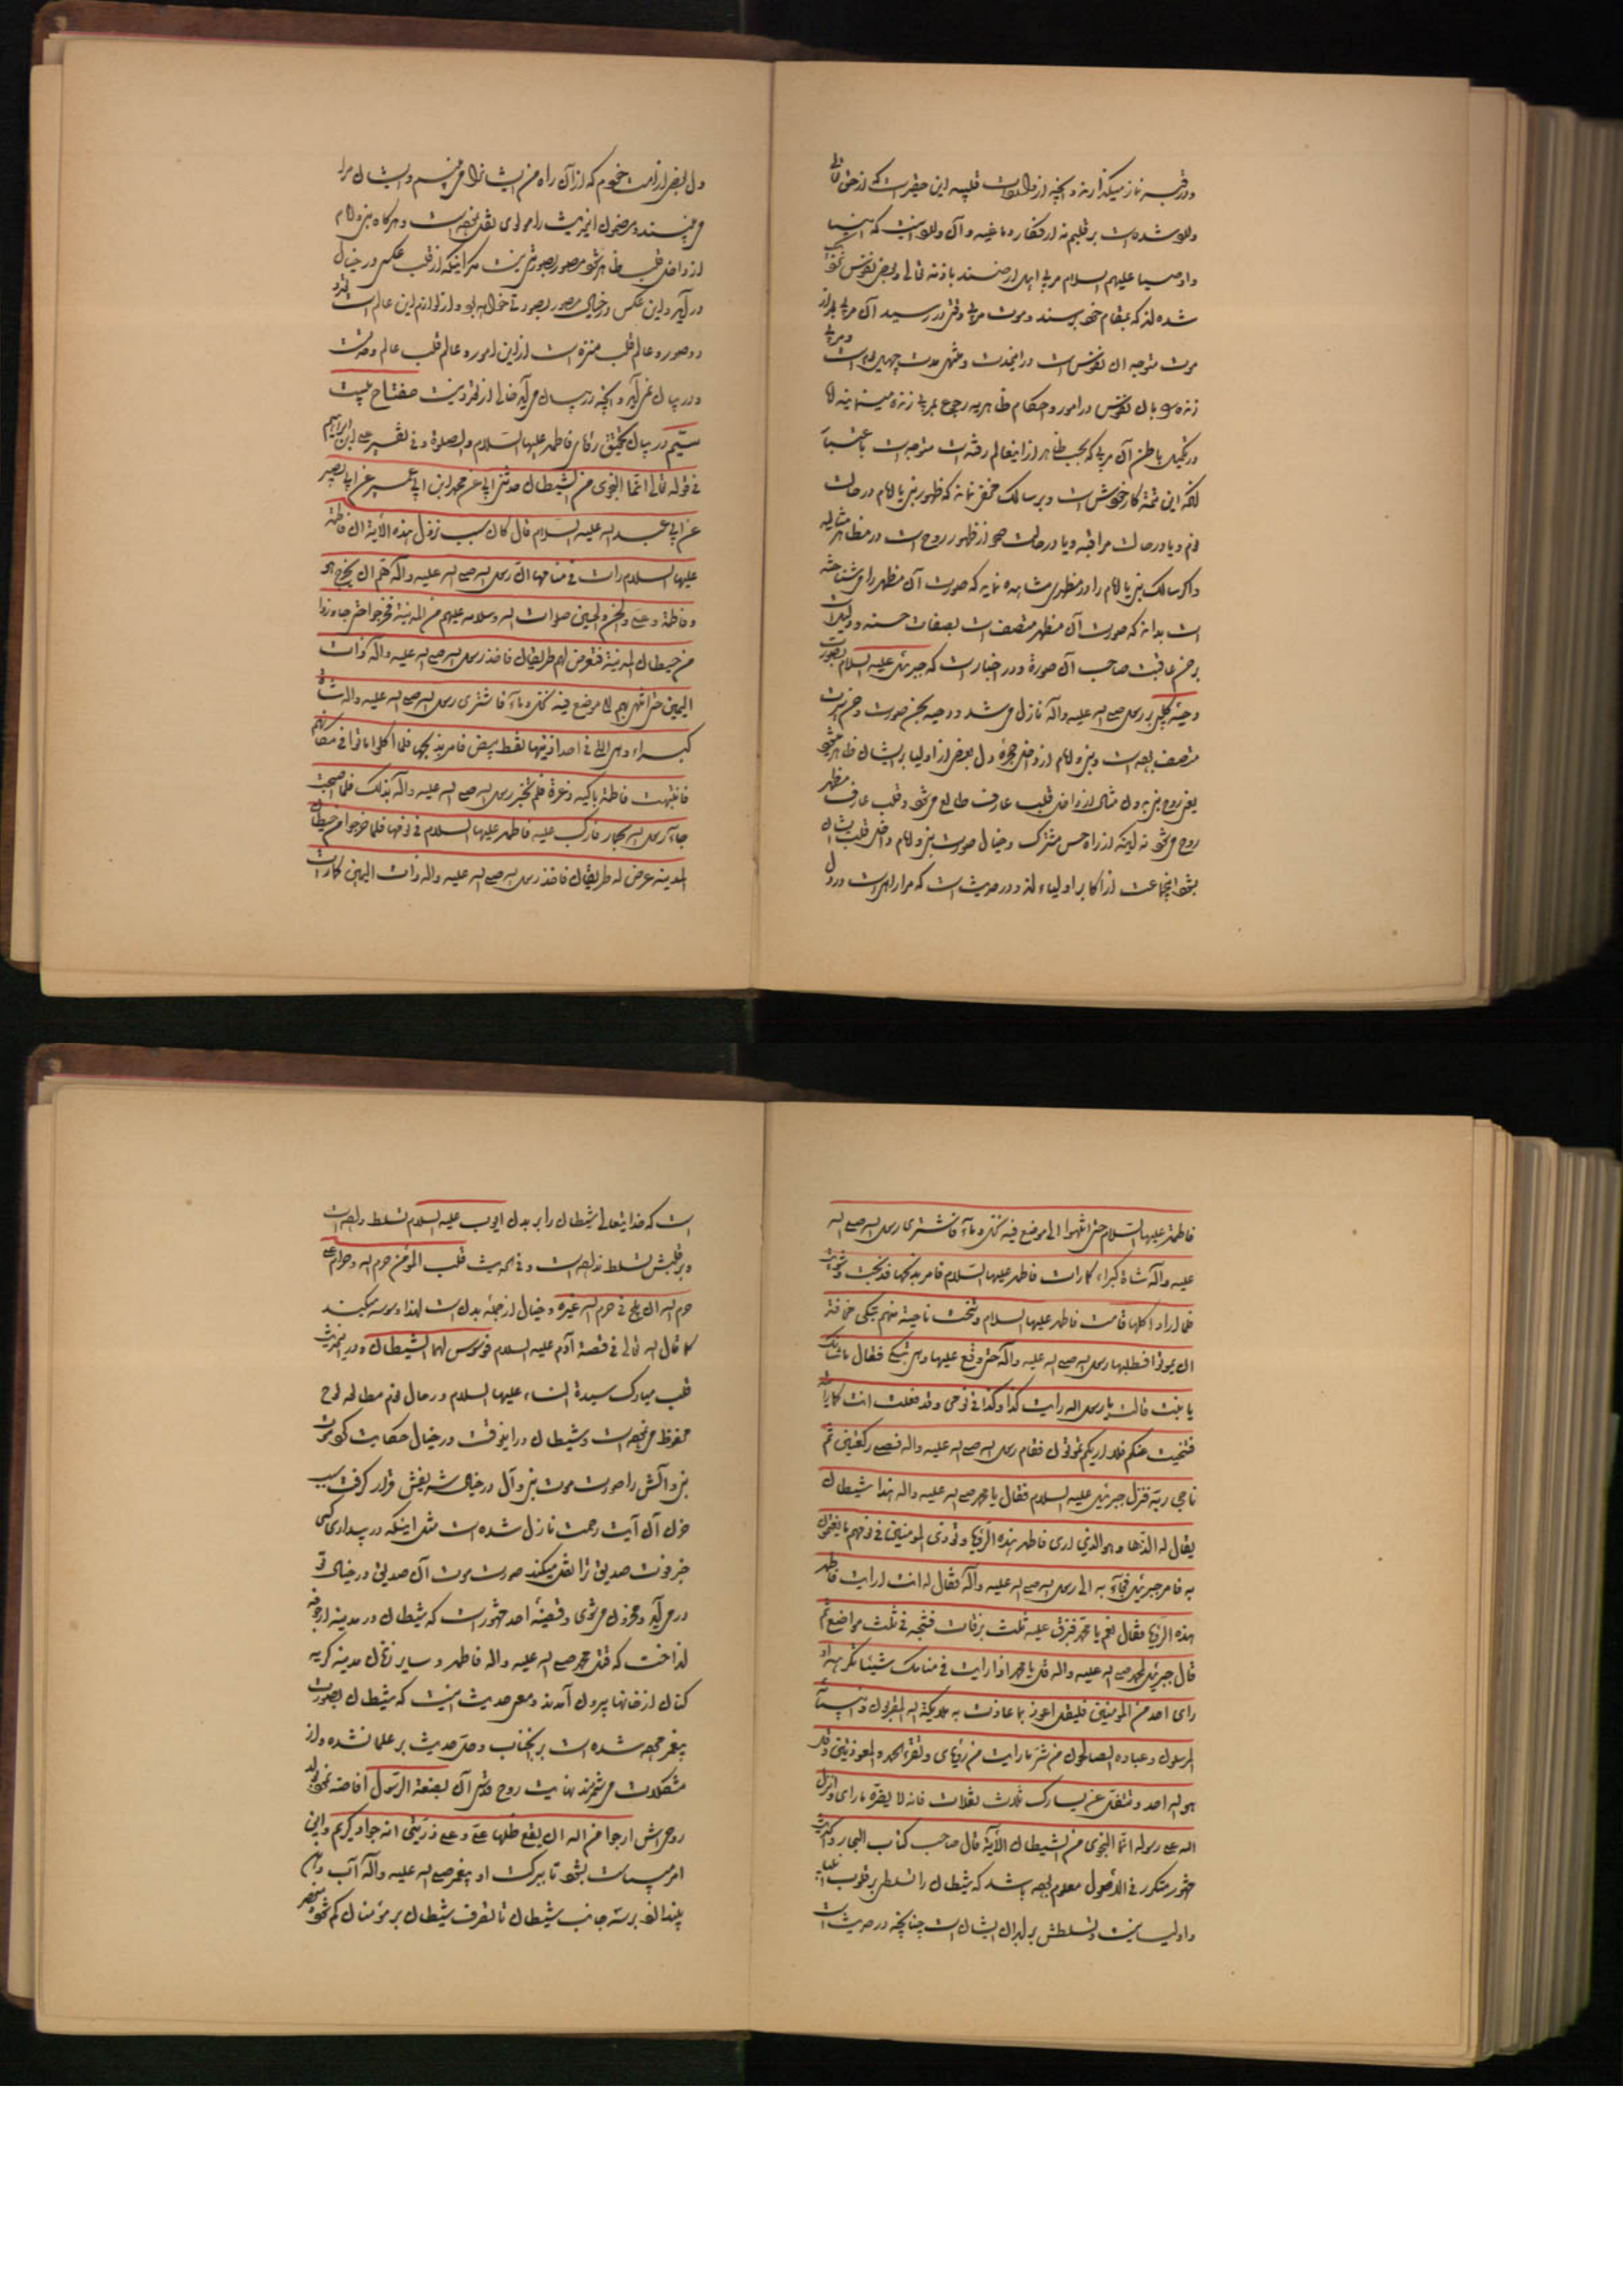 ودر قبر نماز میگذارند و آنچه از واردات قلبیه این حقیر است که از حق تعالی
وارد شده است بر قلبم نه از افکار دماغیه و آن وارد اینست که انبیا
واوصیا علیهم السلام مربی اهل ارضند باذنه تعالی وبعض نفوس
شده اند که بمقام خود برسند وموت مربی وقتی در رسید آن مربی بعد از
موت متوجه آن نفوس است در اینمدت
زنده و بال نفوس در امور واحکام ظاهریه رجوع بمربی زنده مینمایند اما
در تکمیل باطن آن مربی که بحسب ظاهر از اینعالم رفته است متوجه است
آنکه این تتمه کار خودش است وبر سالک مخفی نماند که ظهور نبی یا امام در حالت
نوم ویا در حالت مراقبه ویا در حالت صحو از ظهور روح است در مظاهر مثالیه
واگر سالک نبی یا امام را در مظهری مشاهده نماید که صورت آن مظهر را می شناخته
است بداند که صورت آن مظهر متصف است بصفات حسنه
بر حسن عاقبت صاحب آن صورة ودر اخبار است که جبرئیل علیه السلام بصورت
دحیه کلبی بر رسول الله صلی الله علیه وآله نازل می شد ودحیه بحسن صورت وحسن سیرت
متصف بوده است ونبی وامام از داخل حجره دل بعض از اولیا بر ایشان ظاهر میشود
یعنی روح نبی بدون مثال از داخل قلب عارف طالع می شود وقلب عارف مظهر
روح می شود نه اینکه از راه حس مشترک وخیال صورت نبی وامام داخل قلب ایشان
بشود اینجماعت از اکابر اولیاء اند ودر حدیث است که مرا راهی است در دل
دل بعض از امت خودم که از آن راه من ایشانرا می بینم وایشان مرا
می بینند ومضمون اینحدیث را مولوی نقل نموده است وهرگاه نبی وامام
از داخل قلب ظاهر شود مصور بصورتی نیست مگر اینکه از قلب عکس در خیال
در آید واین عکس در خیال مصور بصورتی خواهد بود واز لوازم این عالم است
وصور وعالم قلب منزه است از این امور وعالم قلب عالم وحدت
ودر بیان نمی آید وآنچه در بیان می آید خالی از قید نیست مفتاح بیست
سیم در بیان تحقیق رؤیای فاطمه علیها السلام والصلوة وفی تفسیر علی ابن ابراهیم
فی قوله تعالی انما النجوی من الشیطان حدثنی ابی عن محمد ابن ابی عمیر عن ابی بصیر
عن ابی عبد الله علیه السلام قال کان سبب نزول هذه الآیة ان فاطمة
علیها السلام رات فی منامها ان رسول الله صلی الله علیه وآله هم ان یخرج هو
وفاطمة وعلی والحسن والحسین صلوات الله وسلامه علیهم من المدینة فخرجوا حتی جاوزوا
من حیطان المدینة فتعرض لهم طریقان فاخذ رسول الله صلی الله علیه وآله ذات
الیمین حتی انتهی بهم الی موضع فیه نخل وماء فاشتری رسول الله صلی الله علیه واله شاة
کبراء وهی التی فی احد اذنیها نقط بیض فامر بذبحها فلما اکلوا ماتوا فی مکانهم
فانتبهت فاطمة باکیة ذعرة فلم تخبر رسول الله صلی الله علیه وآله بذلک فلما اصبحت
جاء رسول الله بحمار فارکب علیه فاطمه علیها السلام فی نومها فلما خرجوا من حیطان
المدینه عرض له طریقان فاخذ رسول الله صلی الله علیه واله ذات الیمین کما رات
فاطمة علیها السلام حتی انتهوا الی موضع فیه نخل وماء فاشتری رسول الله صلی الله
علیه وآله شاة کبراء کما رات فاطمه علیها السلام فامر بذبحها فذبحت وشویت
فلما ارادوا اکلها قامت فاطمه علیها السلام وتنحت ناحیة منهم تبکی مخافة
ان یموتوا فطلبها رسول الله صلی الله علیه وآله حتی وقع علیها وهی تبکی فقال ما شانک
یا بنیة قالت یا رسول الله رایت کذا وکذا فی نومی وقد فعلت انت کما رایته
فتنحیت عنکم فلا اریکم تموتون فقام رسول الله صلی الله علیه واله فصلی رکعتین ثم
ناجی ربه فنزل جبرئیل علیه السلام فقال یا محمد صلی الله علیه واله هذا شیطان
یقال له الدها وهو الذی اری فاطمه هذه الرؤیا ویوذی المومنین فی نومهم ما یغتمون
به فامر جبرئیل فجاء به الی رسول الله صلی الله علیه وآله فقال له انت اریت فاطمه
هذه الرؤیا فقال نعم یا محمد فبزق علیه ثلث بزقات فشجه فی ثلث مواضع ثم
قال جبرئیل لمحمد صلی الله علیه واله قل یا محمد اذا رایت فی منامک شیئا تکرهه او
رای احد من المومنین فلیقل اعوذ بما عاذت به ملایکة الله المقربون وانبیاء
المرسلون وعباده الصالحون من شر ما رایت من رؤیای وتقرء الحمد والمعوذتین وقل
هو الله احد وتتفل عن یسارک ثلاث تفلات فانه لا یضره ما رای وانزل
الله علی رسوله انما النجوی من الشیطان الآیة قال صاحب کتاب البحار والحدیث
مشهور متکرر فی الاصول معلوم بوده باشد که شیطان را تسلط بر قلوب انبیا
واولیا نیست وتسلطش بر ابدان ایشان است چنانچه در حدیث
است که خدایتعالی شیطان را بر بدن ایوب علیه السلام تسلط داده است
وبر قلبش تسلط نداده است وفی الحدیث قلب المؤمن حرم الله وحرام علی
حرم الله ان یلج فی حرم الله غیره وخیال از جمله بدن است لهذا وسوسه میکند
کما قال الله تعالی فی قصة آدم علیه السلام فوسوس لهما الشیطان ودر اینحدیث
قلب مبارک سیدة النساء علیها السلام در حال نوم مطالعه لوح
محفوظ می نموده است وشیطان در اینوقت در خیال حکایت
نبی وآلش را صورت موت نبی وآل در خیال شریفش قرار گرفت بسبب
حزن آن آیت رحمت نازل شده است مثل اینکه در بیداری کسی
خبر فوت صدیق ترا نقل میکند صورت موت آن صدیق در خیال تو
در می آید ومحزون می شوی وقضیه احد مشهور است که شیطان در مدینه آوازه
انداخت که قتل محمد صلی الله علیه واله فاطمه وسایر زنان مدینه گریه
کنان از خانها بیرون آمدند ومعنی حدیث اینست که شیطان بصورت
پیغمبر در نیامده است بر آنجناب وحل حدیث بر علما نشده واز
مشکلات می شمرند نهایت روح قدس آن بضعة الرسول افاضه نمود
روحی الیه ارجوا من الله ان یقع ظلها علی وعلی ذریتی انه جواد کریم واین
امر سیاست بشود تا ببرکت او پیغمبر صلی الله علیه وآله آب دهن
بیندازد بر سه جانب شیطان تا تصرف شیطان بر مؤمنان کم شود